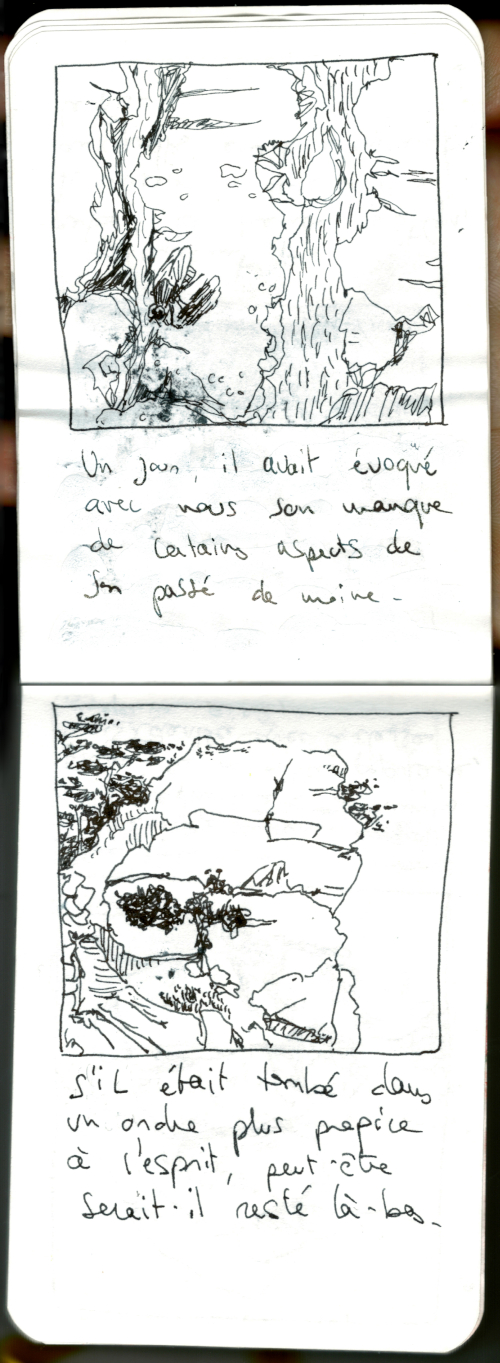 Un jour, il avait évoqué
avec nous son manque
de certains aspects de
son passé de moine.
S'il était tombé dans
un ordre plus propice
à l'esprit, peut-être
serait-il resté là-bas.